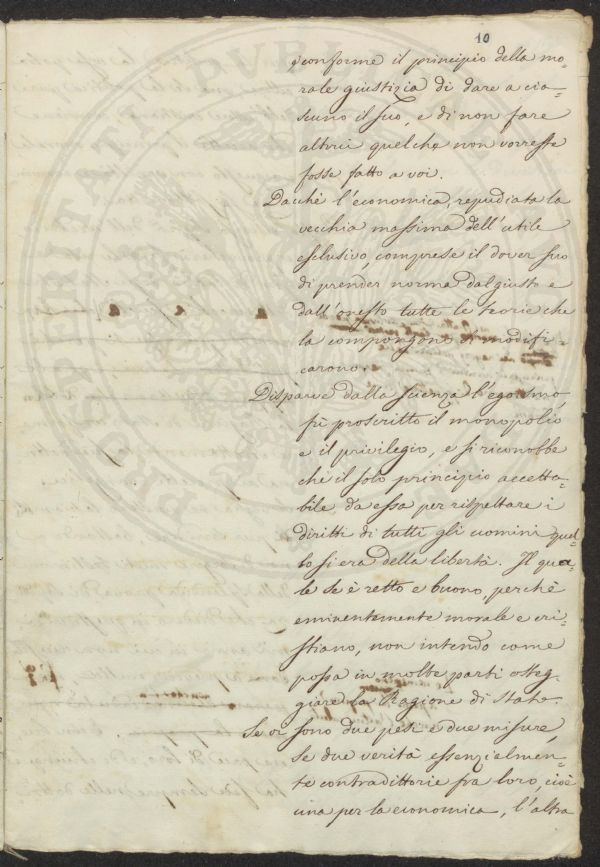 10
conforme il principio della mo-
rale giustizia di dare a cia-
scuno il suo, e di non fare
altrui quel che non vorreste
fosse fatto a voi.
Dacchè l'economica, repudiata la
vecchia massima dell'utile
esclusivo, comprese il dover suo
di prender norma dal giusto e
dall'onesto tutte le teorie che
la compongono si modifi-
carono.
Disparve dalla scienza l'egoismo,
fù proscritto il monopolio
e il privilegio, e si riconobbe
che il solo principio accetta-
bile da essa per rispettare i
diritti di tutti gli uomini quel-
lo si era della libertà. Il qua-
le se è retto e buono, perchè
eminentemente morale e cri-
stiano, non intendo come
possa in molte parti osteg-
giare la Ragione di Stato.
Se vi sono due pesi e due misure,
se due verità essenzialmen-
te contradittorie fra loro, cioè
una per la economica, l'altra